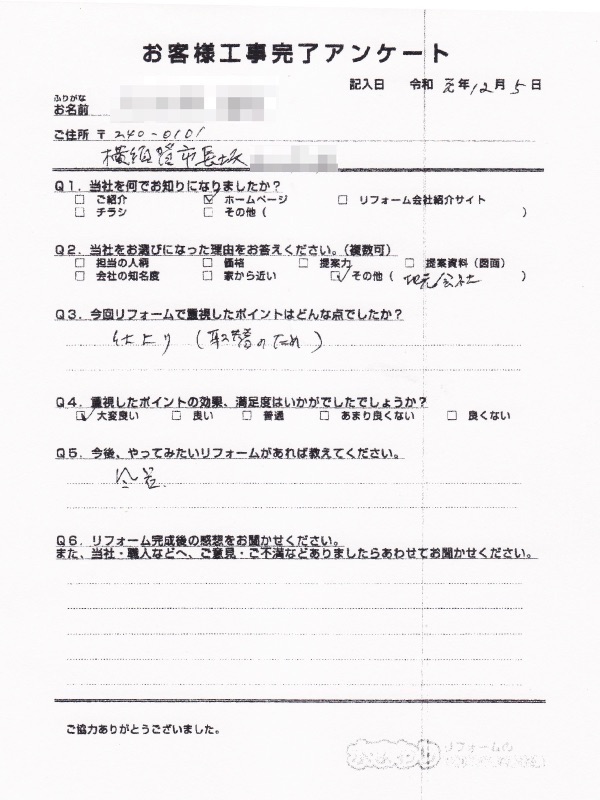 お客様工事完了アンケート
記入日 令和元年12月5日
ふりがな
お名前
ご住所 〒240-0101
横須賀市長坂
Q1．当社を何でお知りになりましたか？
□ ご紹介 ☑ ホームページ □ リフォーム会社紹介サイト
□ チラシ □ その他（ ）
Q2．当社をお選びになった理由をお答えください。（複数可）
□ 担当の人柄 □ 価格 □ 提案力 □ 提案資料（図面）
□ 会社の知名度 □ 家から近い ☑ その他（ 地元会社 ）
Q3．今回リフォームで重視したポイントはどんな点でしたか？
仕上り（取替のため）
Q4．重視したポイントの効果、満足度はいかがでしたでしょうか？
☑ 大変良い □ 良い □ 普通 □ あまり良くない □ 良くない
Q5．今後、やってみたいリフォームがあれば教えてください。
Q6．リフォーム完成後の感想をお聞かせください。
また、当社・職人などへ、ご意見・ご不満などありましたらあわせてお聞かせください。
ご協力ありがとうございました。
リフォームの